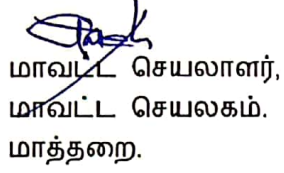 மாவட்ட செயலாளர்,
மாவட்ட செயலகம்.
மாத்தறை.